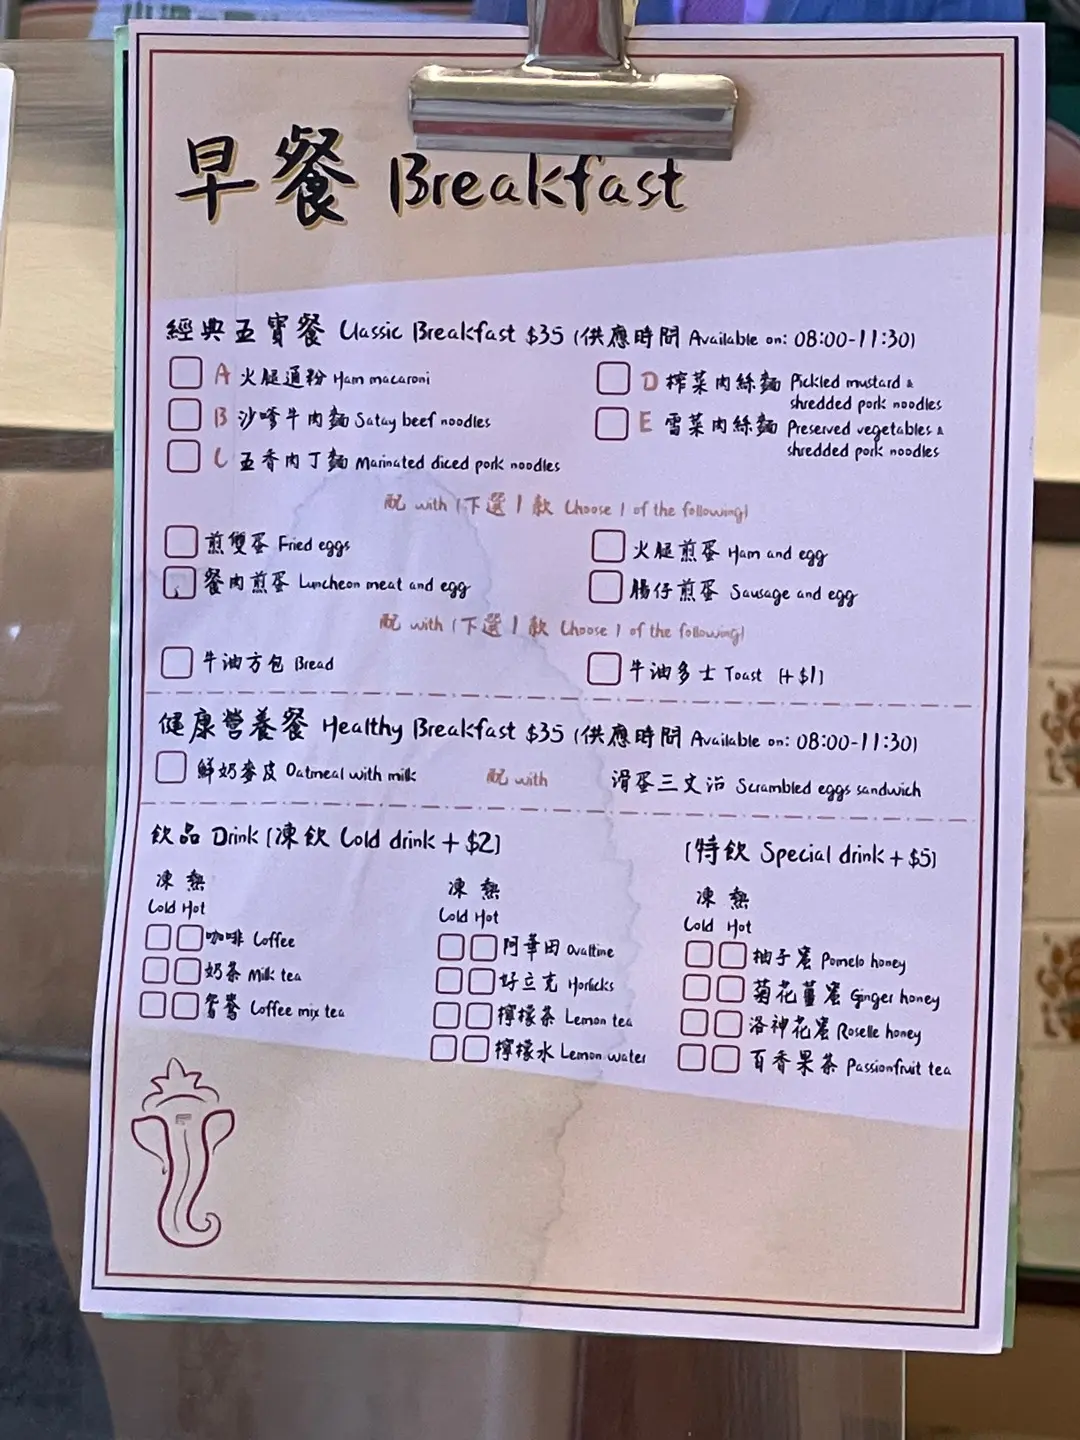 早餐 Breakfast
經典五寶餐 Classic Breakfast $35 (供應時間 Available on: 08:00-11:30)
A 火腿通粉 Ham macaroni
B 沙嗲牛肉麵 Satay beef noodles
C 五香肉丁麵 Marinated diced pork noodles
D 榨菜肉絲麵 Pickled mustard &
shredded pork noodles
E 雪菜肉絲麵 Preserved vegetables &
shredded pork noodles
配 with (下選1款 Choose 1 of the following)
煎雙蛋 Fried eggs
餐肉煎蛋 Luncheon meat and egg
火腿煎蛋 Ham and egg
腸仔煎蛋 Sausage and egg
配 with (下選1款 Choose 1 of the following)
牛油方包 Bread
牛油多士 Toast (+$1)
健康營養餐 Healthy Breakfast $35 (供應時間 Available on: 08:00-11:30)
鮮奶麥皮 Oatmeal with milk 配 with 滑蛋三文治 Scrambled eggs sandwich
飲品 Drink (凍飲 Cold drink + $2)
凍 熱
Cold Hot
咖啡 Coffee
奶茶 Milk tea
鴛鴦 Coffee mix tea
凍 熱
Cold Hot
阿華田 Ovaltine
好立克 Horlicks
檸檬茶 Lemon tea
檸檬水 Lemon water
(特飲 Special drink + $5)
凍 熱
Cold Hot
柚子蜜 Pomelo honey
菊花薑蜜 Ginger honey
洛神花蜜 Roselle honey
百香果茶 Passionfruit tea